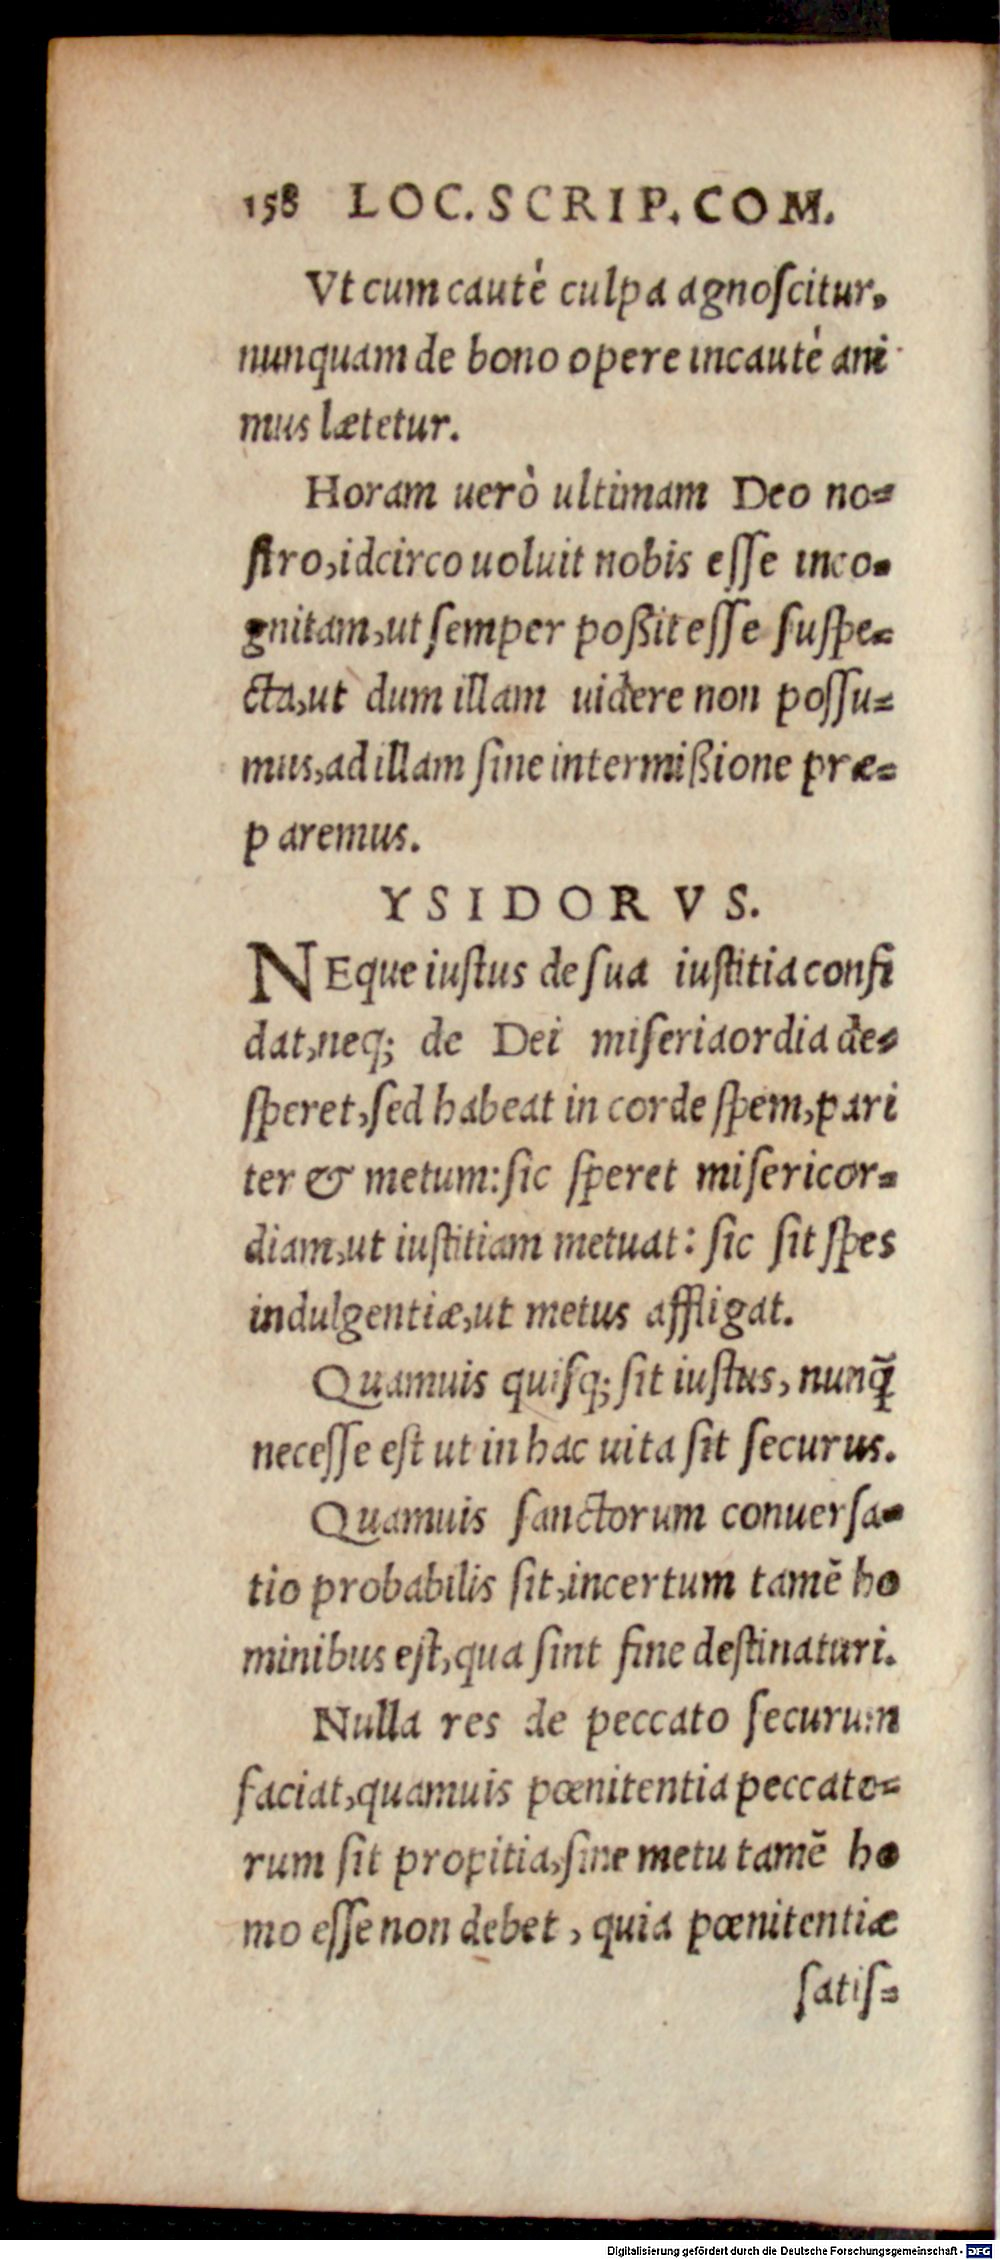 158 LOC. SCRIP. COM.
Vt cum cautè culpa agnoſcitur,
nunquam de bono opere incautè ani
mus lætetur.
Horam uerò ultimam Deo no=
ſtro, idcirco uoluit nobis eſſe inco=
gnitam, ut ſemper poßit eſſe ſuſpe=
cta, ut dum illam uidere non poſſu=
mus, ad illam ſine intermißione præ=
paremus.
YSIDORVS.
NEque iuſtus de ſua iuſtitia confi
dat, neq; de Dei miſeriaordia de=
ſperet, ſed habeat in corde ſpem, pari
ter & metum: ſic ſperet miſericor=
diam, ut iuſtitiam metuat: ſic ſit ſpes
indulgentiæ, ut metus affligat.
Quamuis quiſq; ſit iuſtus, nunq̃
neceſſe eſt ut in hac uita ſit ſecurus.
Quamuis ſanctorum conuerſa=
tio probabilis ſit, incertum tamẽ ho
minibus eſt, qua ſint fine deſtinaturi.
Nulla res de peccato ſecurum
faciat, quamuis pœnitentia peccato=
rum ſit propitia, ſine metu tamẽ ho
mo eſſe non debet, quia pœnitentiæ
ſatiſ=
Digitalisierung gefördert durch die Deutsche Forschungsgemeinschaft - DFG